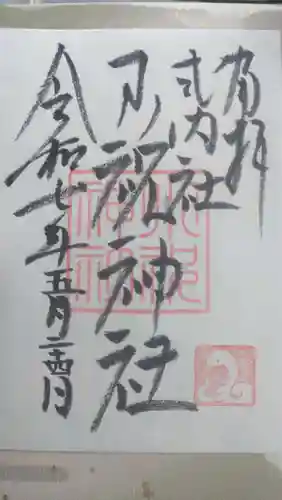 奉拝
式内社
小祝神社
令和七年五月二十四日